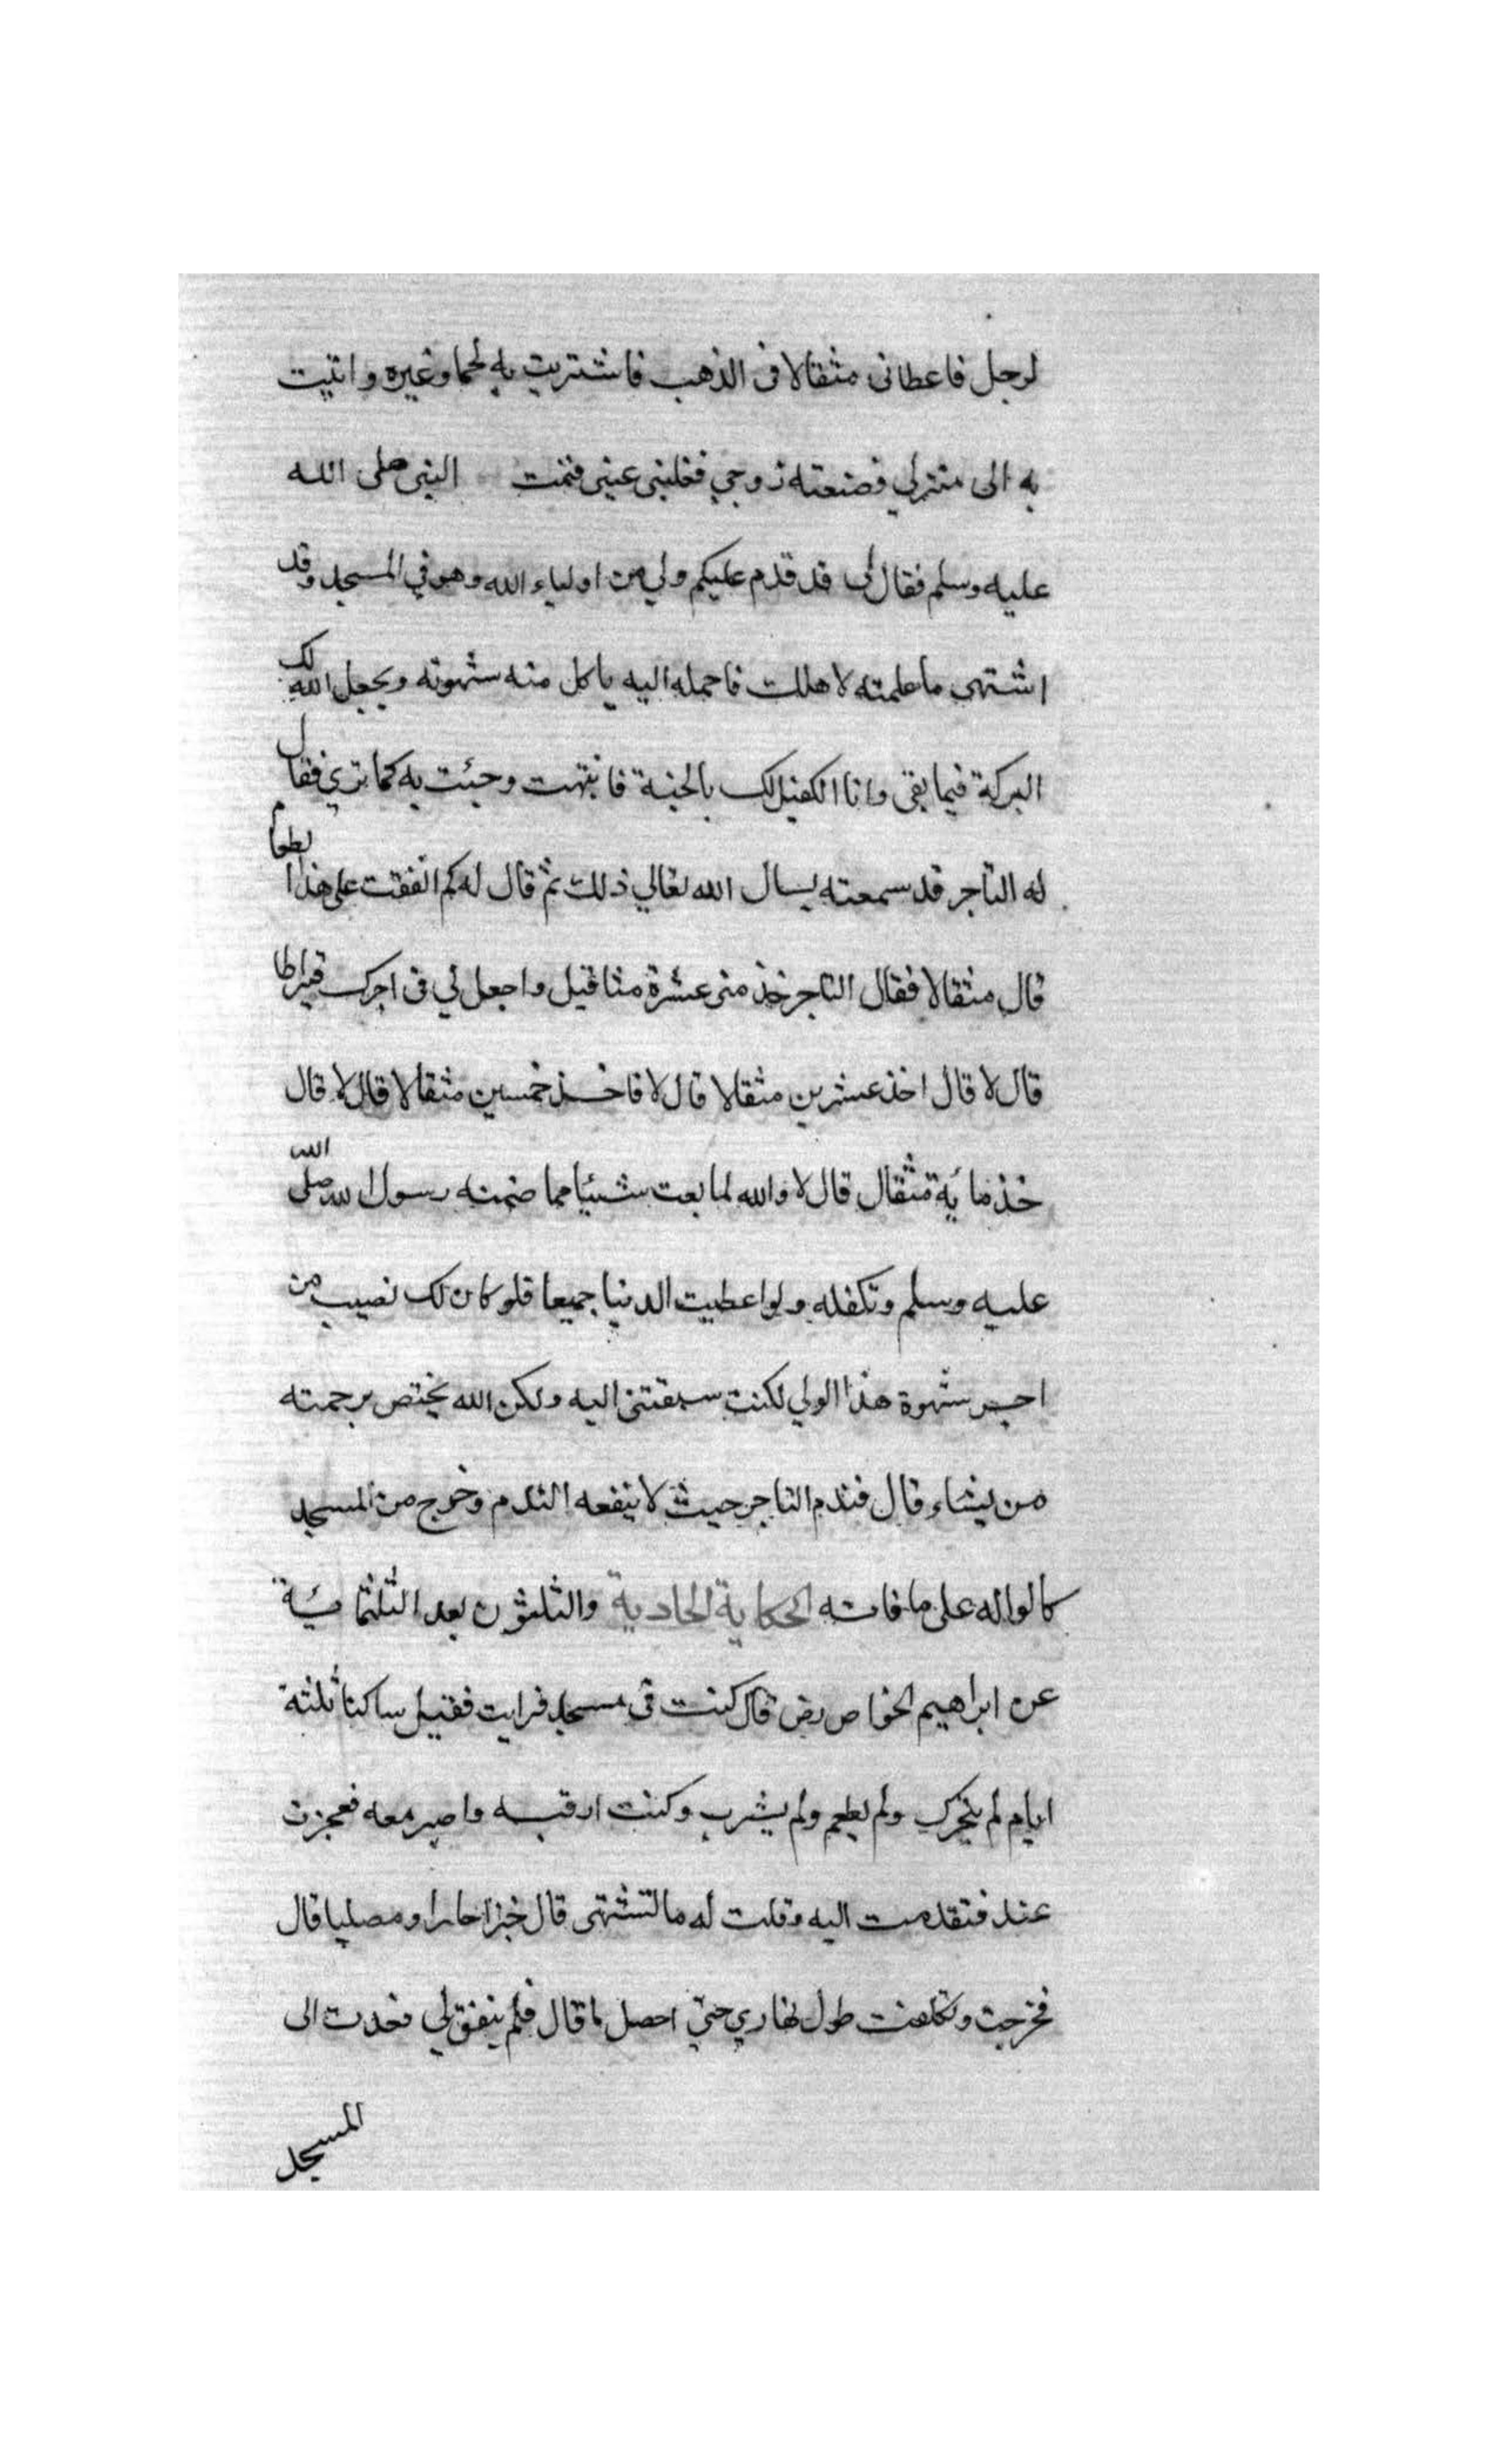 لرجل فاعطانى مثقالا فى الذهب فاشتريت به لحما وغيره واتيت
به الى منزلي فصنعته زوجي فغلبنى عينى فنمت النبى صلى الله
عليه وسلم فقال لى قد قدم عليكم ولي من اولياء الله وهو في المسجد وقد
اشتهى ما علمته لاهلك فاحمله اليه ياكل منه شهوته ويجعل الله لك
البركة فيما بقى وانا الكفيل لك بالجنة فانتبهت وجئت به كما تري فقال
له التاجر قد سمعته يسال الله تعالي ذلك ثم قال له كم انفقت على هذا الطعام
قال مثقالا فقال التاجر خذ منى عشرة مثاقيل واجعل لي فى اجرك قيراطا
قال لا قال اخذ عشرين مثقالا قال لا فاخذ خمسين مثقالا قال لا قال
خذ مائة مثقال قال لا والله لما بعت شيئا مما ضمنه رسول الله صلى الله
عليه وسلم وتكفله ولو اعطيت الدنيا جميعا فلو كان لك نصيب من
اجر شهوة هذا الولي لكنت سبقتنى اليه ولكن الله يختص برحمته
من يشاء قال فندم التاجر حيث لا ينفعه الندم وخرج من المسجد
كالواله على ما فاته الحكاية الحادية والثلثون بعد الثلثمائية
عن ابراهيم الخواص رض قال كنت فى مسجد فرايت فقيل ساكنا ثلثة
ايام لم يتحرك ولم يطعم ولم يشرب وكنت ارقبه واصبر معه فعجزت
عند فتقدمت اليه وقلت له ما تشتهى قال خبزا حارا ومصليا قال
فخرجت وتكلفت طول نهاري حتى احصل ما قال فلم يتفق لي فعدت الى
المسجد